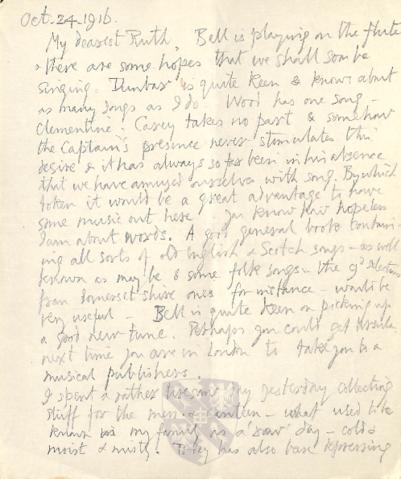 Oct. 24. 1916.
My dearest Ruth, Bell is playing on the flute
& there are some hopes that we shall soon be
singing. Dunbar is quite keen & knows about
as many songs as I do. Wood has one song –
Clementine; Casey takes no part & somehow
the Captain's presence never stimulates this
desire & it has always so far been in his absence
that we have amused ourselves with song. By which
token it would be a great advantage to have
some music out here – you know how hopeless
I am about words. A good general book contain-
ing all sorts of old English & Scotch songs – as well
known as may be & some folk songs – the
from Somersetshire ones for instance – would be
very useful – Bell is quite keen on picking up
a good new tune. Perhaps you could get
next time you are in London to take you to a
musical publishers.
I spent a rather tiresome day yesterday collecting
stuff for the mess & canteen – what used to be
known in my family as a 'raw' day – cold
moist & misty. Today has also been depressing